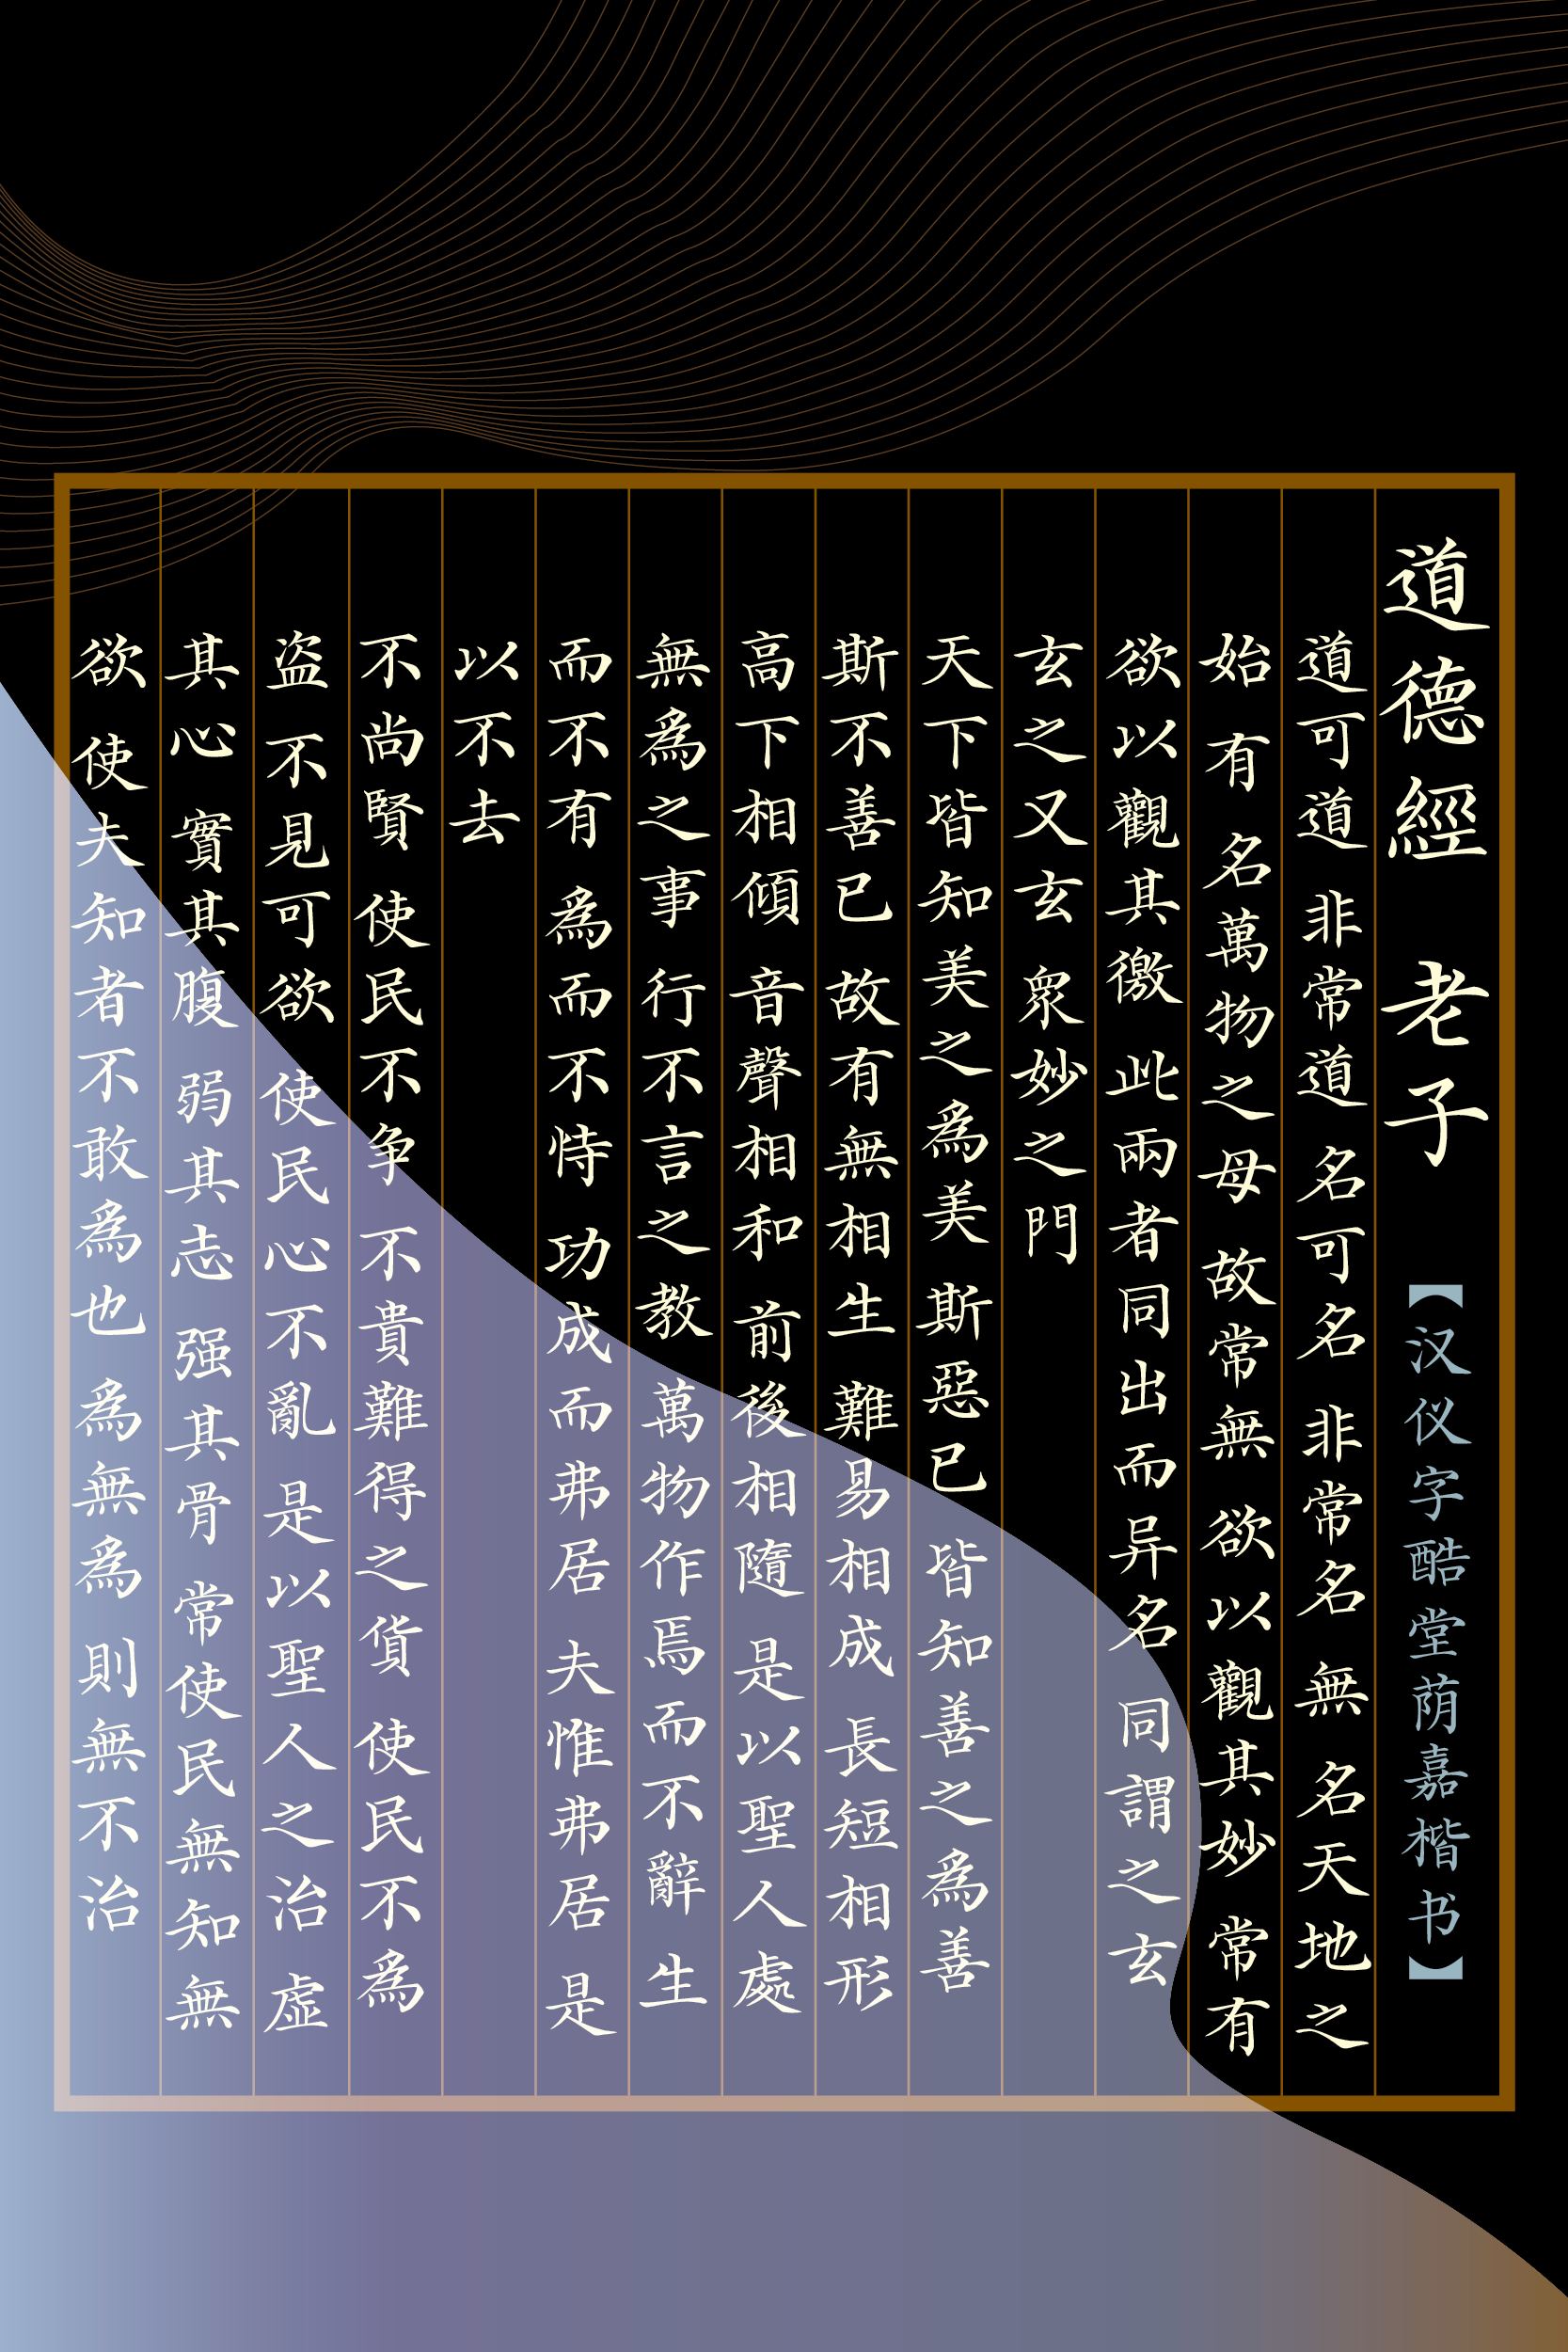 道德經 老子 【汉仪字酷堂荫嘉楷书】
道可道 非常道 名可名 非常名 無 名天地之
始 有 名萬物之母 故常無 欲以觀其妙 常有
欲以觀其徼 此兩者同出而异名 同謂之玄
玄之又玄 衆妙之門
天下皆知美之為美 斯惡已 皆知善之為善
斯不善已 故有無相生 難易相成 長短相形
高下相傾 音聲相和 前後相隨 是以聖人處
無為之事 行不言之教 萬物作焉而不辭 生
而不有 為而不恃 功成而弗居 夫惟弗居 是
以不去
不尚賢 使民不争 不貴難得之貨 使民不為
盗 不見可欲 使民心不亂 是以聖人之治 虛
其心 實其腹 弱其志 强其骨 常使民無知無
欲 使夫知者不敢為也 為無為 則無不治